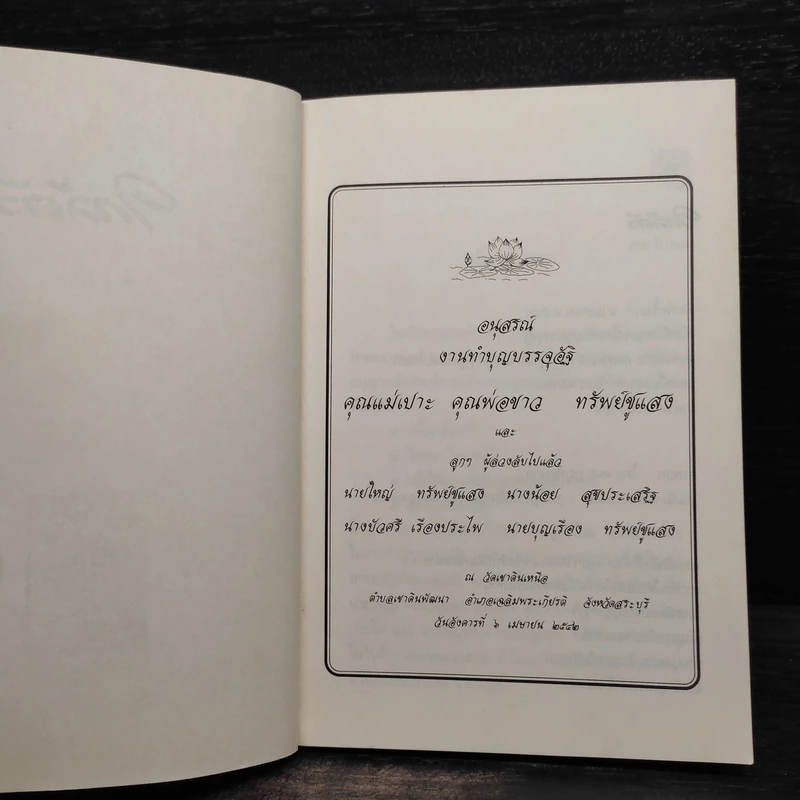 อนุสรณ์
งานทำบุญบรรจุอัฐิ
คุณแม่เปาะ คุณพ่อขาว ทรัพย์ชูแสง
และ
ลูกๆ ผู้ล่วงลับไปแล้ว
นายใหญ่ ทรัพย์ชูแสง นางน้อย สุขประเสริฐ
นางบัวศรี เรืองประไพ นายบุญเรือง ทรัพย์ชูแสง
ณ วัดเขาดินเหนือ
ตำบลเขาดินพัฒนา อำเภอเฉลิมพระเกียรติ จังหวัดสระบุรี
วันอังคารที่ ๖ เมษายน ๒๕๔๒